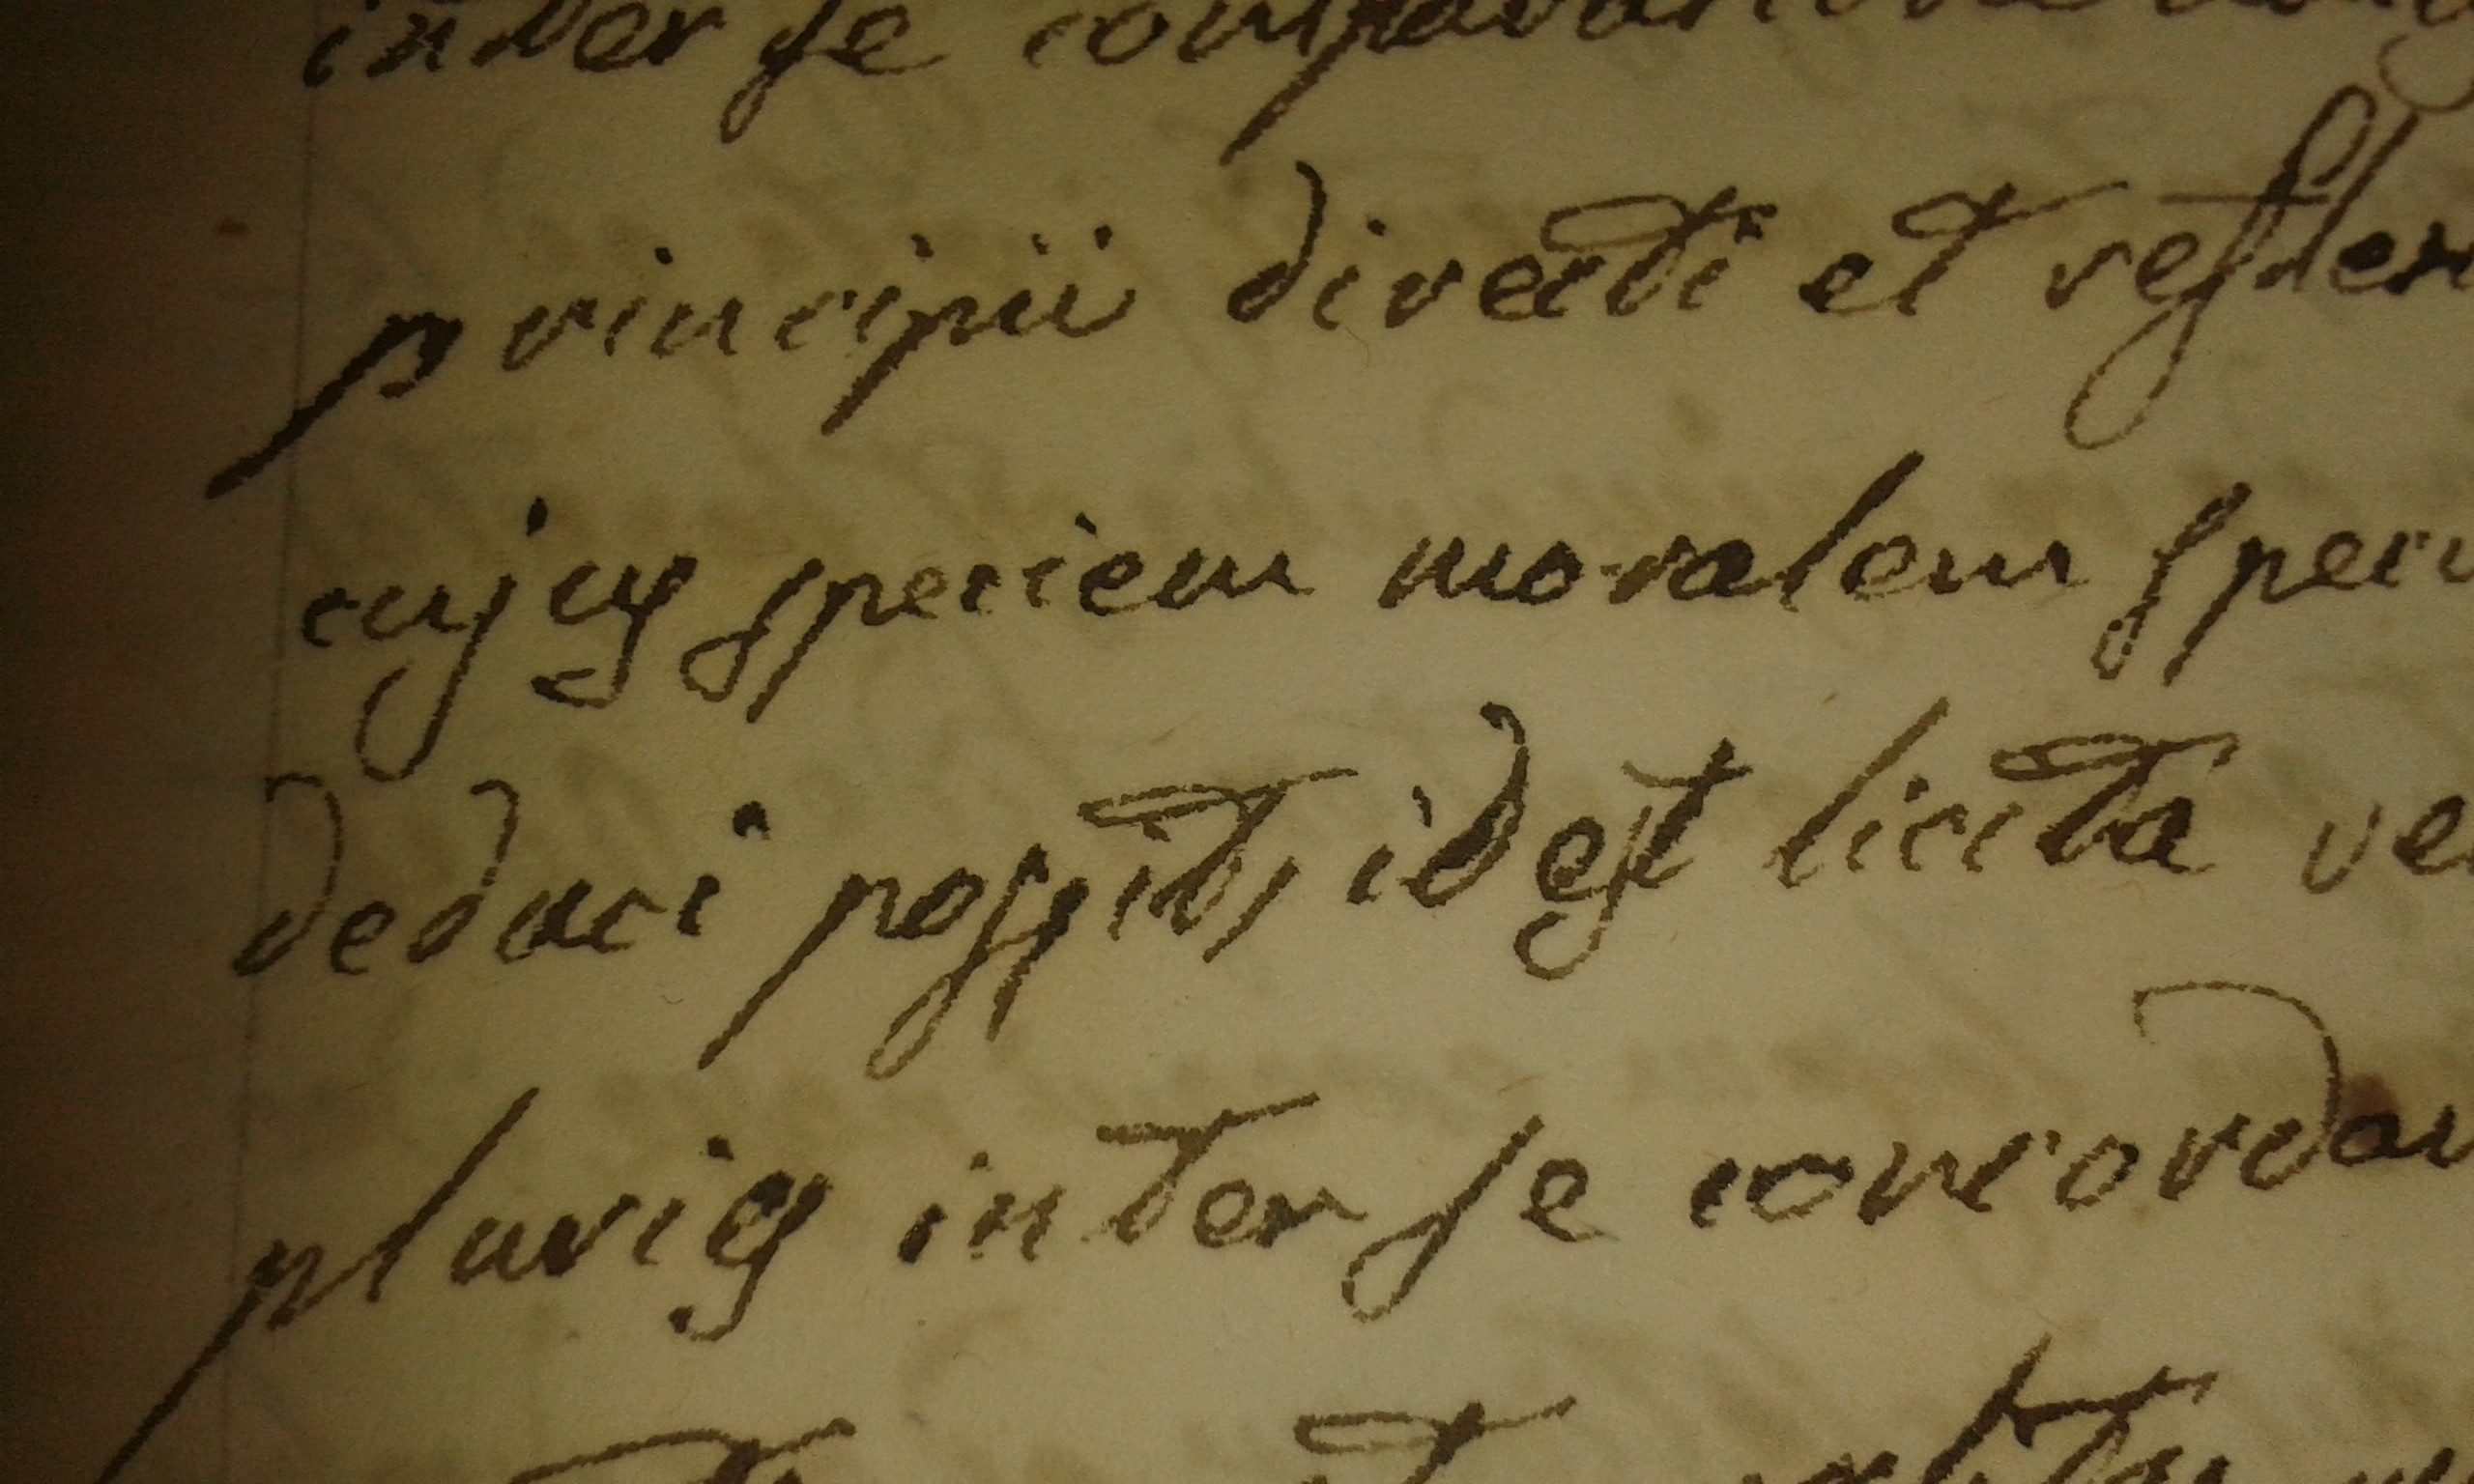 inter se comparatione
principii directi et reflex
cujus speciem moralem speci
deduci possit, id est licita ve
pluries inter se concordan